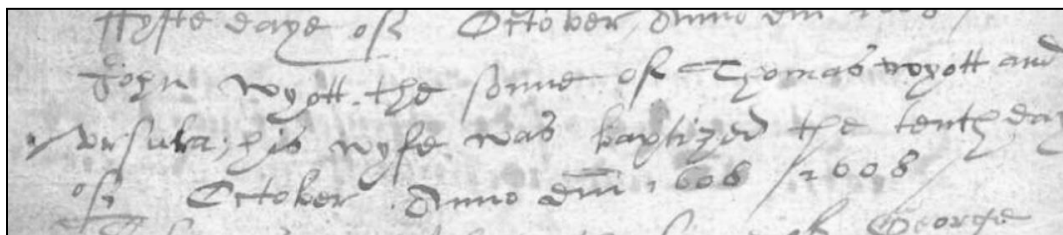 ffyfte daye of October, Anno dm 1608
John Wyott the sonne of Thomas Wyott and
Ursula, his wyfe was baptized the tenth day
of October Anno dm 1608 / 1608
George